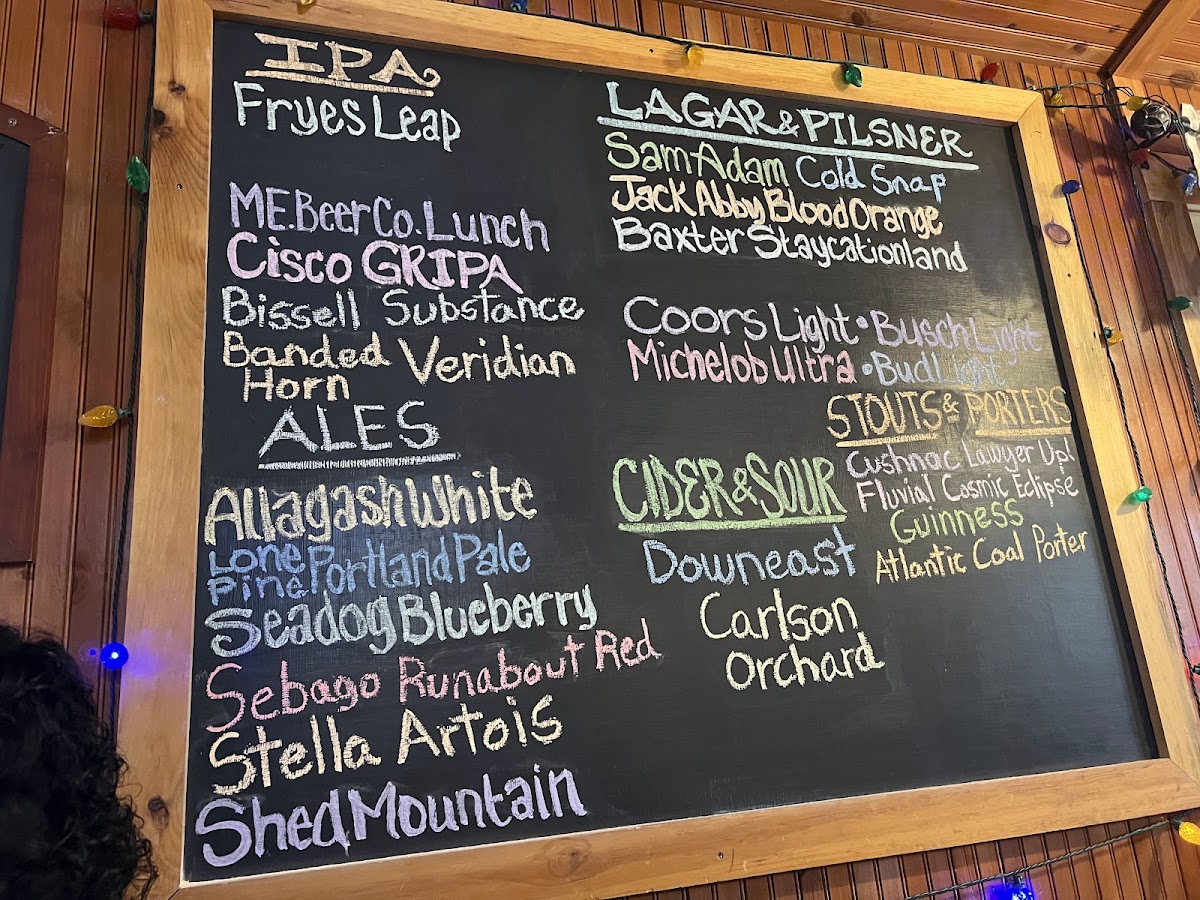 IPA
Fryes Leap
M.E. Beer Co. Lunch
Cisco GRIPA
Bissell Substance
Banded Veridian
Horn
ALES
Allagash White
Lone Portland Pale
Pine
Seadog Blueberry
Sebago Runabout Red
Stella Artois
Shed Mountain
LAGAR & PILSNER
Sam Adam Cold Snap
Jack Abby Blood Orange
Baxter Staycationland
Coors Light • Busch Light
Michelob Ultra • Bud Light
STOUTS & PORTERS
Cushnac Lawyer Up!
Fluvial Cosmic Eclipse
Guinness
Atlantic Coal Porter
CIDER & SOUR
Downeast
Carlson
Orchard